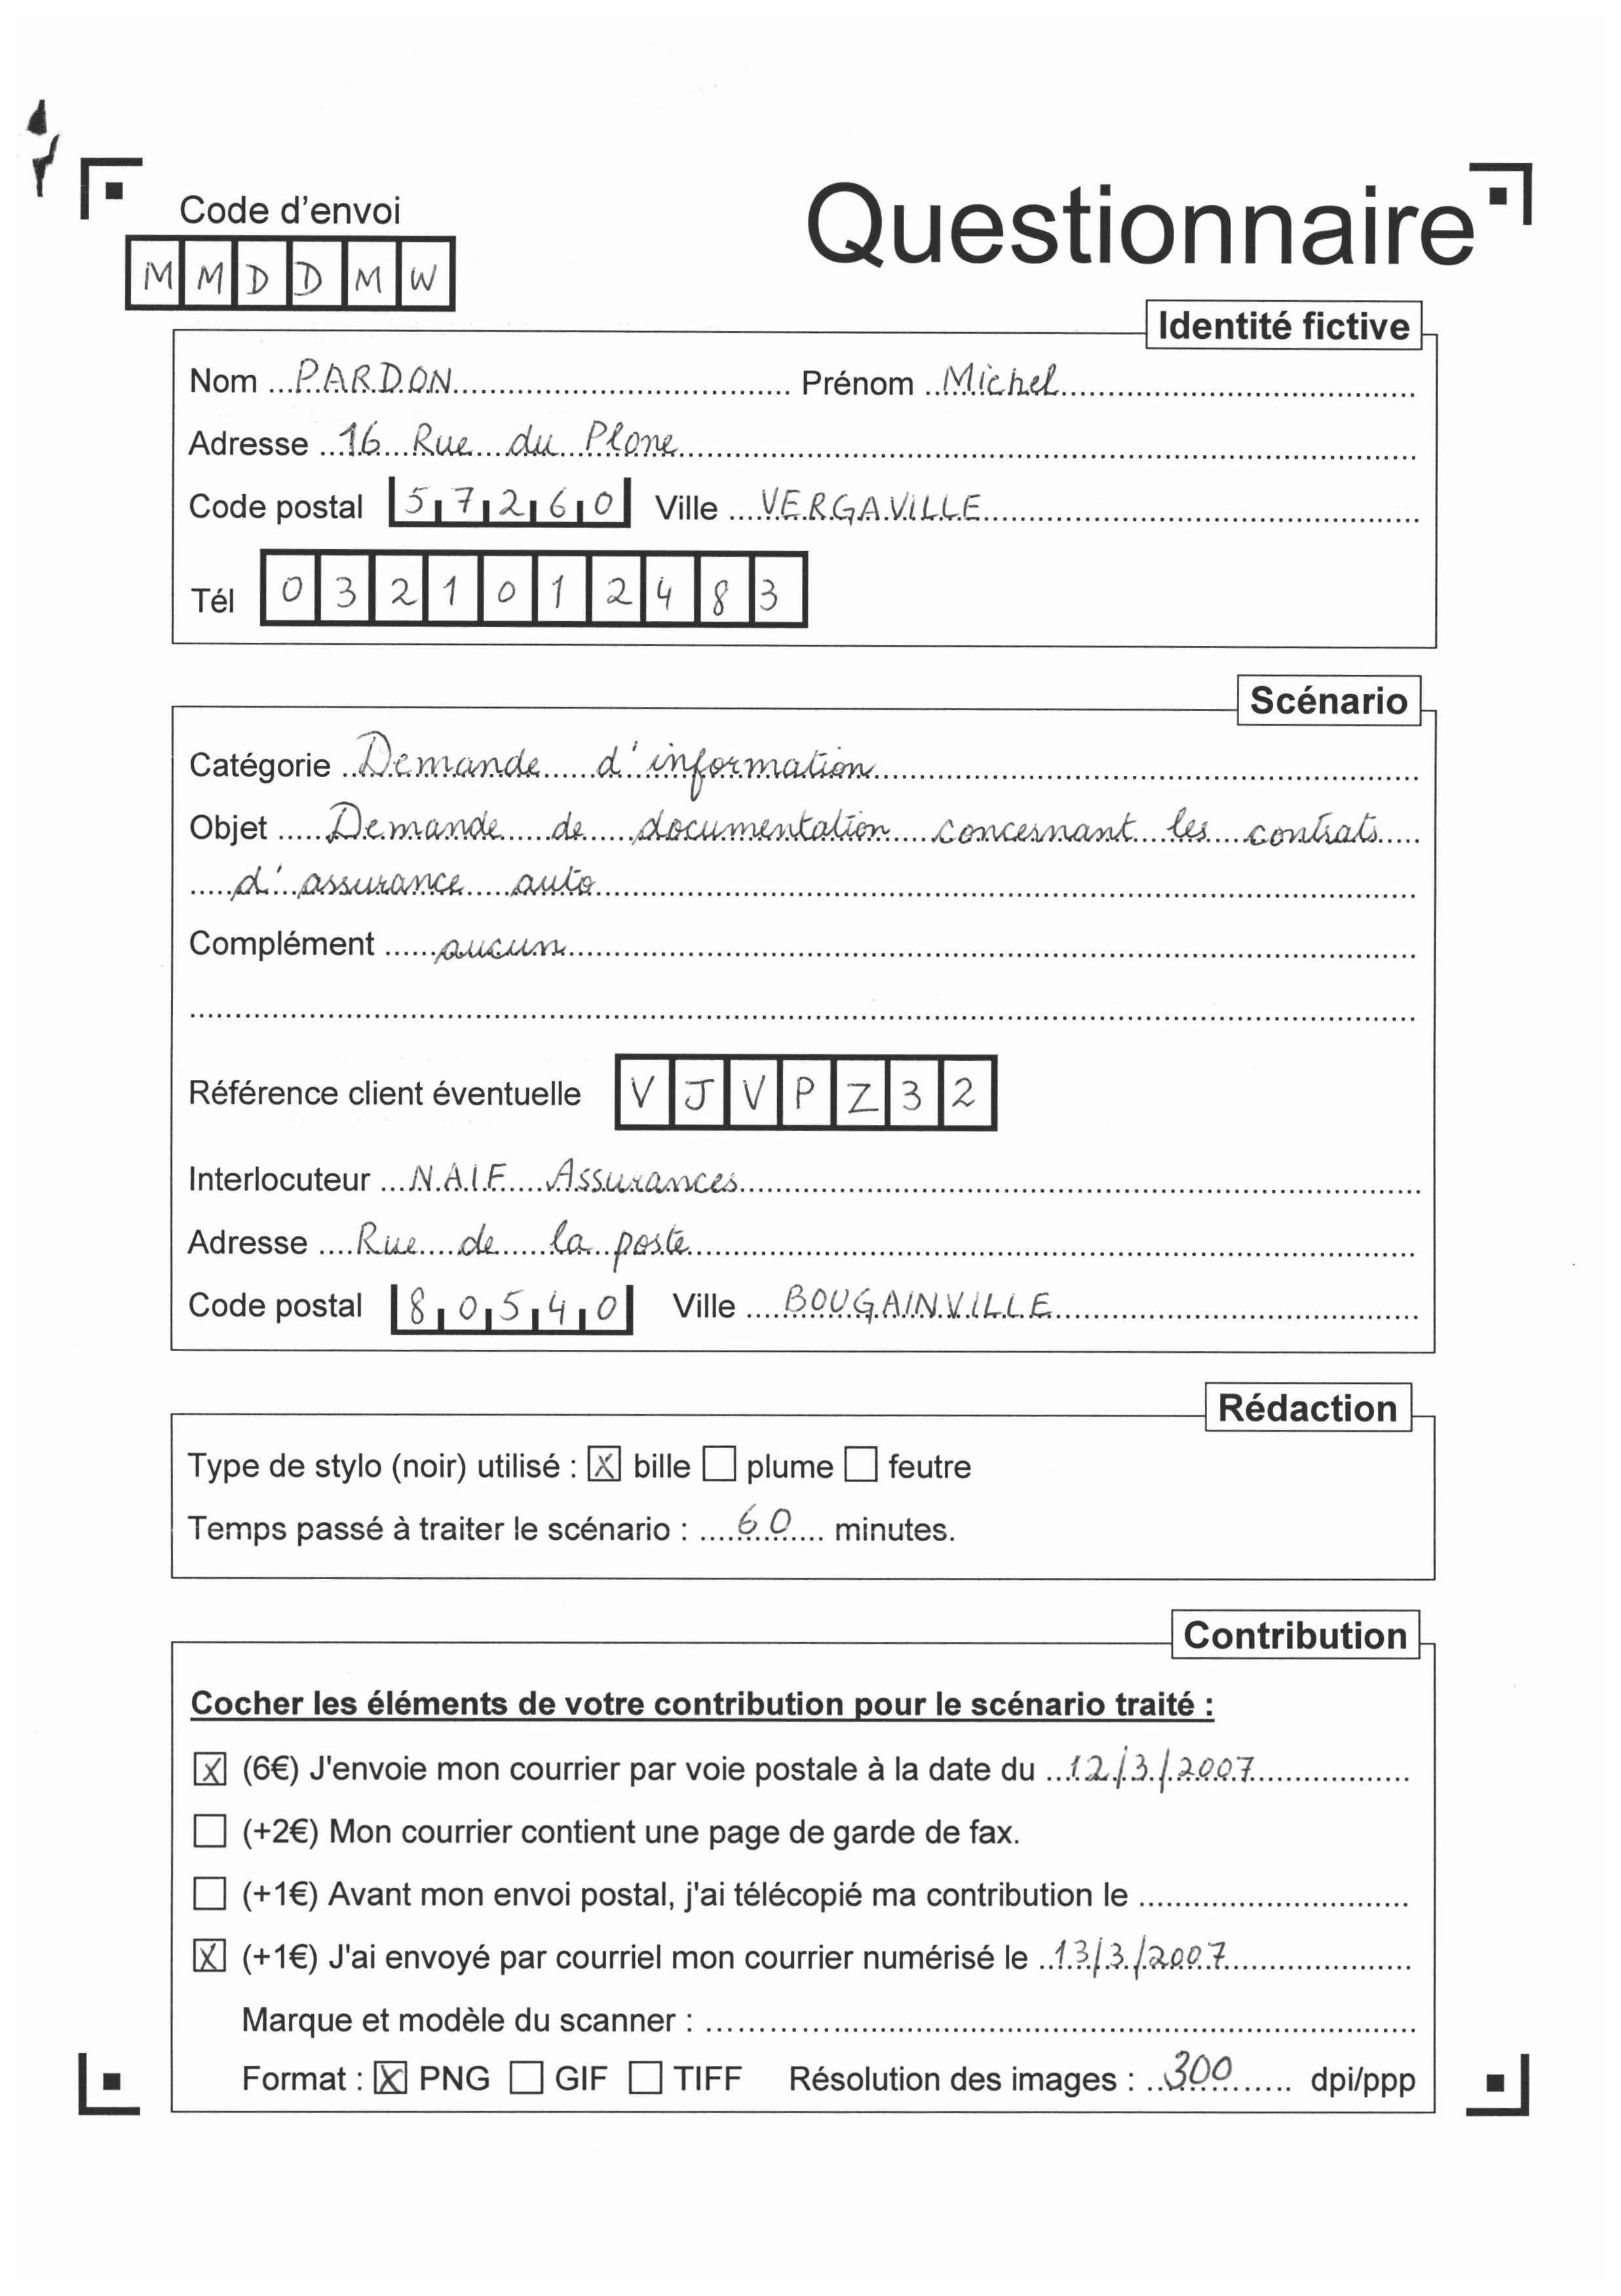 Code d'envoi
Questionnaire
M M D D M W
Identité fictive
Nom PARDON Prénom Michel
Adresse 16 Rue du Plone
Code postal 57260 Ville VERGAVILLE
Tél 0321012483
Scénario
Catégorie Demande d'information
Objet Demande de documentation concernant les contrats
d'assurance auto
Complément aucun
Référence client éventuelle VJVPZ32
Interlocuteur NAIF Assurances
Adresse Rue de la poste
Code postal 80540 Ville BOUGAINVILLE
Rédaction
Type de stylo (noir) utilisé : ☒ bille ☐ plume ☐ feutre
Temps passé à traiter le scénario : 60 minutes.
Contribution
Cocher les éléments de votre contribution pour le scénario traité :
☒ (6€) J'envoie mon courrier par voie postale à la date du 12/3/2007
☐ (+2€) Mon courrier contient une page de garde de fax.
☐ (+1€) Avant mon envoi postal, j'ai télécopié ma contribution le
☒ (+1€) J'ai envoyé par courriel mon courrier numérisé le 13/3/2007
Marque et modèle du scanner :
Format : ☒ PNG ☐ GIF ☐ TIFF Résolution des images : 300 dpi/ppp